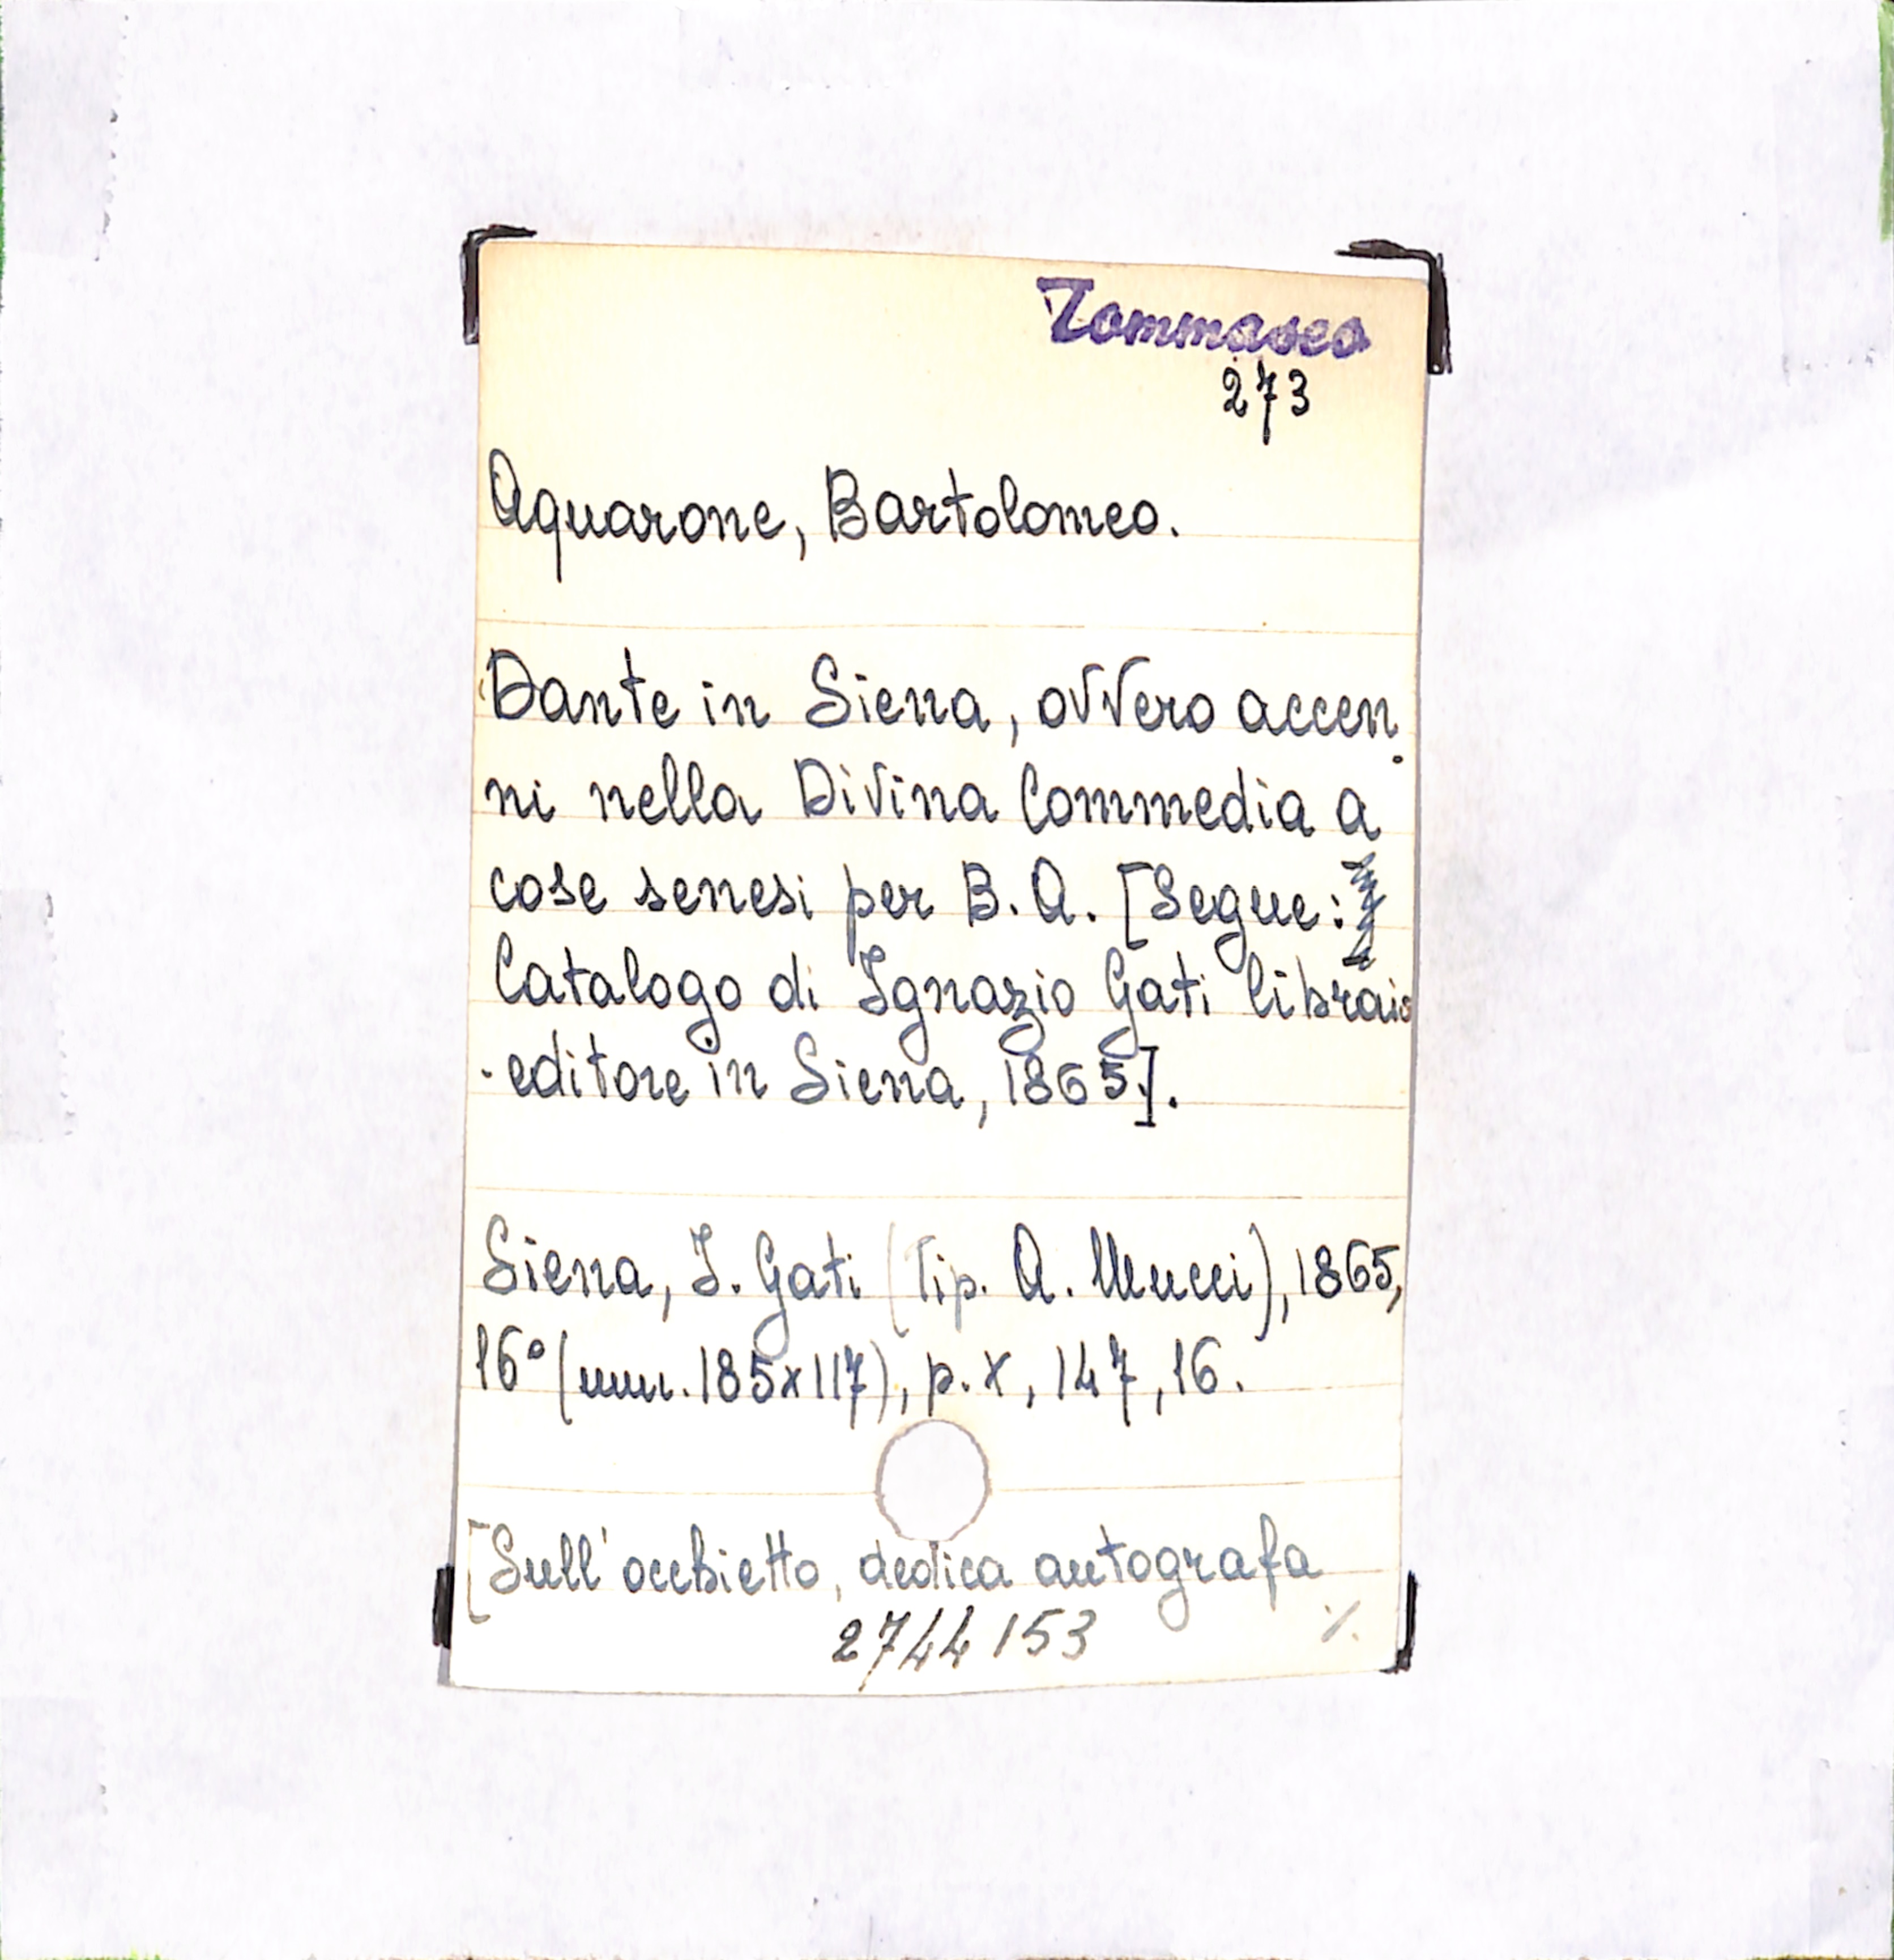 Tommaseo
273
Aquarone, Bartolomeo.
Dante in Siena, ovvero accen
ni nella Divina Commedia a
cose senesi per B. A. [Segue:
Catalogo di Ignazio Gati libraio
-editore in Siena, 1865].
Siena, I. Gati (Tip. A. Mucci), 1865,
16° (mm. 185x117), p. X, 147, 16.
[Sull'occhietto, dedica autografa
2744153 ./.